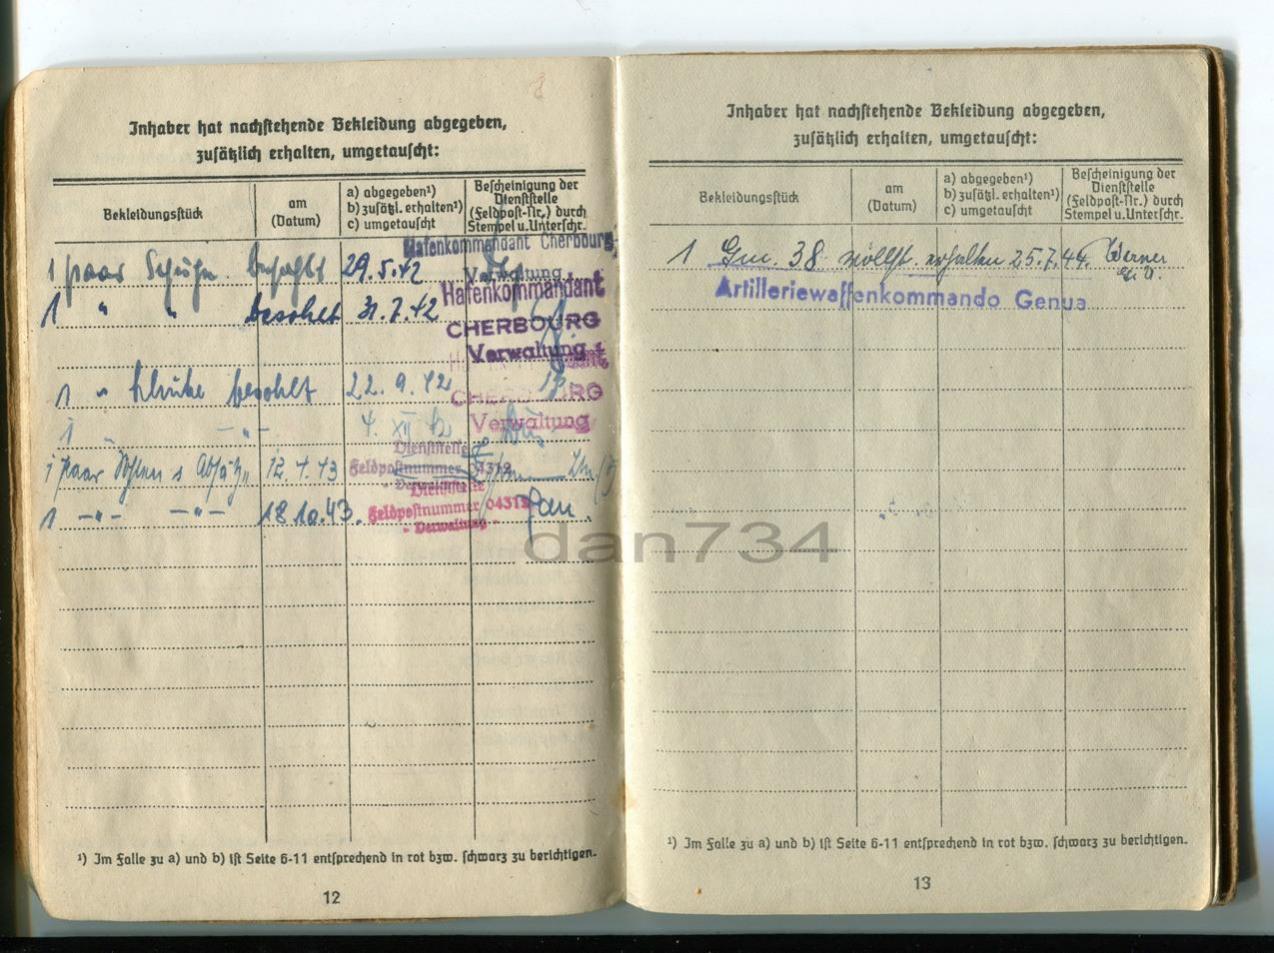 Inhaber hat nachstehende Bekleidung abgegeben,
zusätzlich erhalten, umgetauscht:
Bekleidungsstück
am
(Datum)
a) abgegeben¹)
b) zusätzl. erhalten¹)
c) umgetauscht
Bescheinigung der
Dienststelle
(Feldpost-Nr.) durch
Stempel u. Unterschr.
Hafenkommandant Cherbourg
Verwaltung
1 paar Schuhe besohlt 29.5.42
Hafenkommandant
CHERBOURG
Verwaltung
1 " " besohlt 31.7.42
1 " besohlt 22.9.42
CHERBOURG
Verwaltung
1 " -"- 4. XII 42
Dienststelle
Feldpostnummer 04312
- Verwaltung -
1 paar Sohlen 12.4.43
Dienststelle
Feldpostnummer 04312
- Verwaltung -
1 -"- -"- 18.10.43.
¹) Im Falle zu a) und b) ist Seite 6-11 entsprechend in rot bzw. schwarz zu berichtigen.
12
Inhaber hat nachstehende Bekleidung abgegeben,
zusätzlich erhalten, umgetauscht:
Bekleidungsstück
am
(Datum)
a) abgegeben¹)
b) zusätzl. erhalten¹)
c) umgetauscht
Bescheinigung der
Dienststelle
(Feldpost-Nr.) durch
Stempel u. Unterschr.
1 Gm. 38 vollst. erhalten 25.7.44. Werner
Artilleriewaffenkommando Genua
¹) Im Falle zu a) und b) ist Seite 6-11 entsprechend in rot bzw. schwarz zu berichtigen.
13
dan734